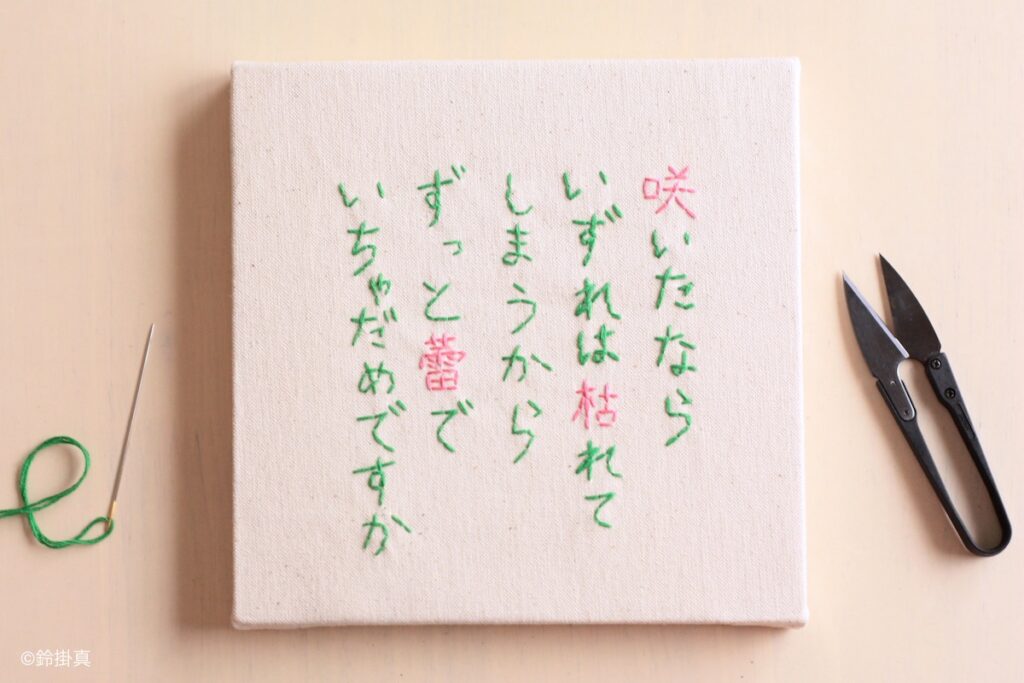 咲いたなら
いずれは枯れて
しまうから
ずっと蕾で
いちゃだめですか
©鈴掛真